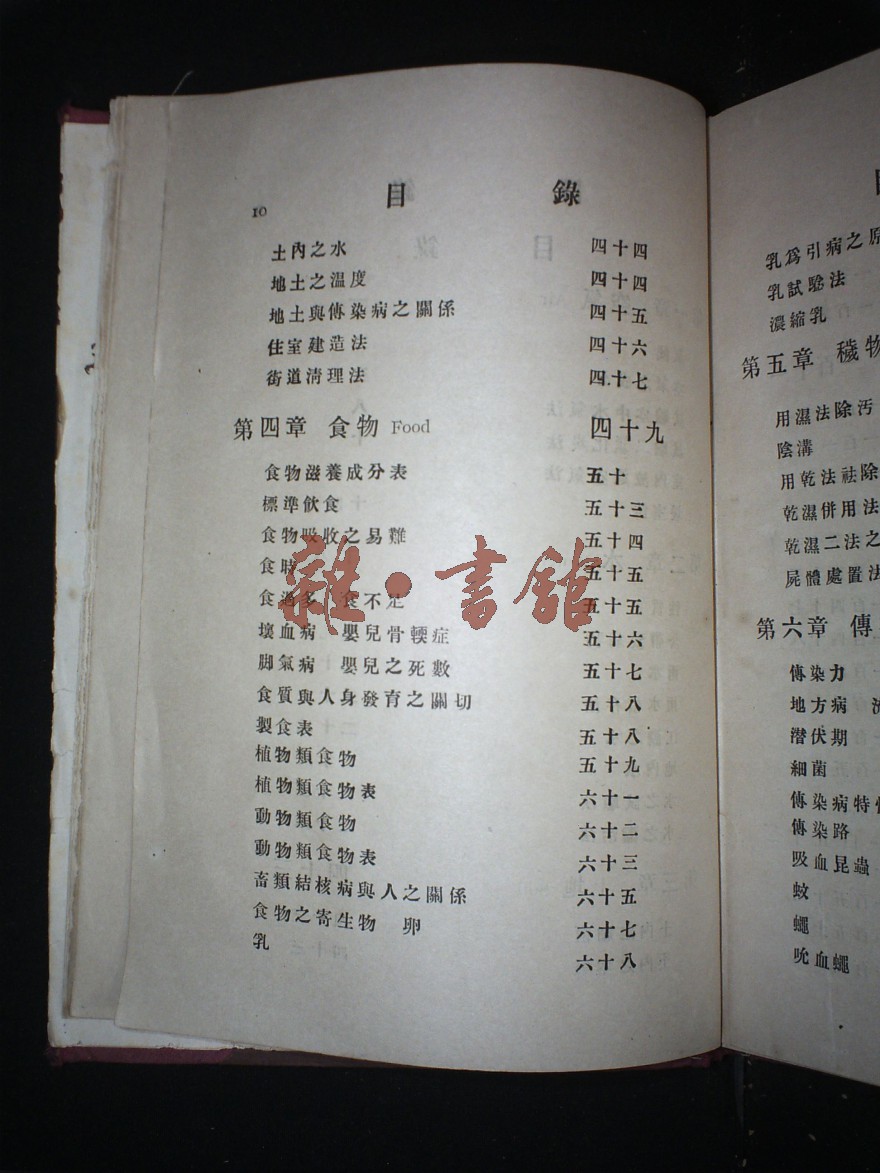 10 目 錄
土內之水 四十四
地土之温度 四十四
地土與傳染病之關係 四十五
住室建造法 四十六
街道清理法 四十七
第四章 食物 Food 四十九
食物滋養成分表 五十
標準飲食 五十三
食物吸收之易難 五十四
食時 五十五
食過多 食不足 五十五
壞血病 嬰兒骨輭症 五十六
脚氣病 嬰兒之死數 五十七
食質與人身發育之關切 五十八
製食表 五十八
植物類食物 五十九
植物類食物表 六十一
動物類食物 六十二
動物類食物表 六十三
畜類結核病與人之關係 六十五
食物之寄生物 卵 六十七
乳 六十八
雜·書館
乳爲引病之原
乳試騐法
濃縮乳
第五章 穢物
用濕法除汚
陰溝
用乾法祛除
乾濕併用法
乾濕二法之
屍體處置法
第六章 傳
傳染力
地方病
潜伏期
細菌
傳染病特
傳染路
吸血昆蟲
蚊
蠅
吮血蠅